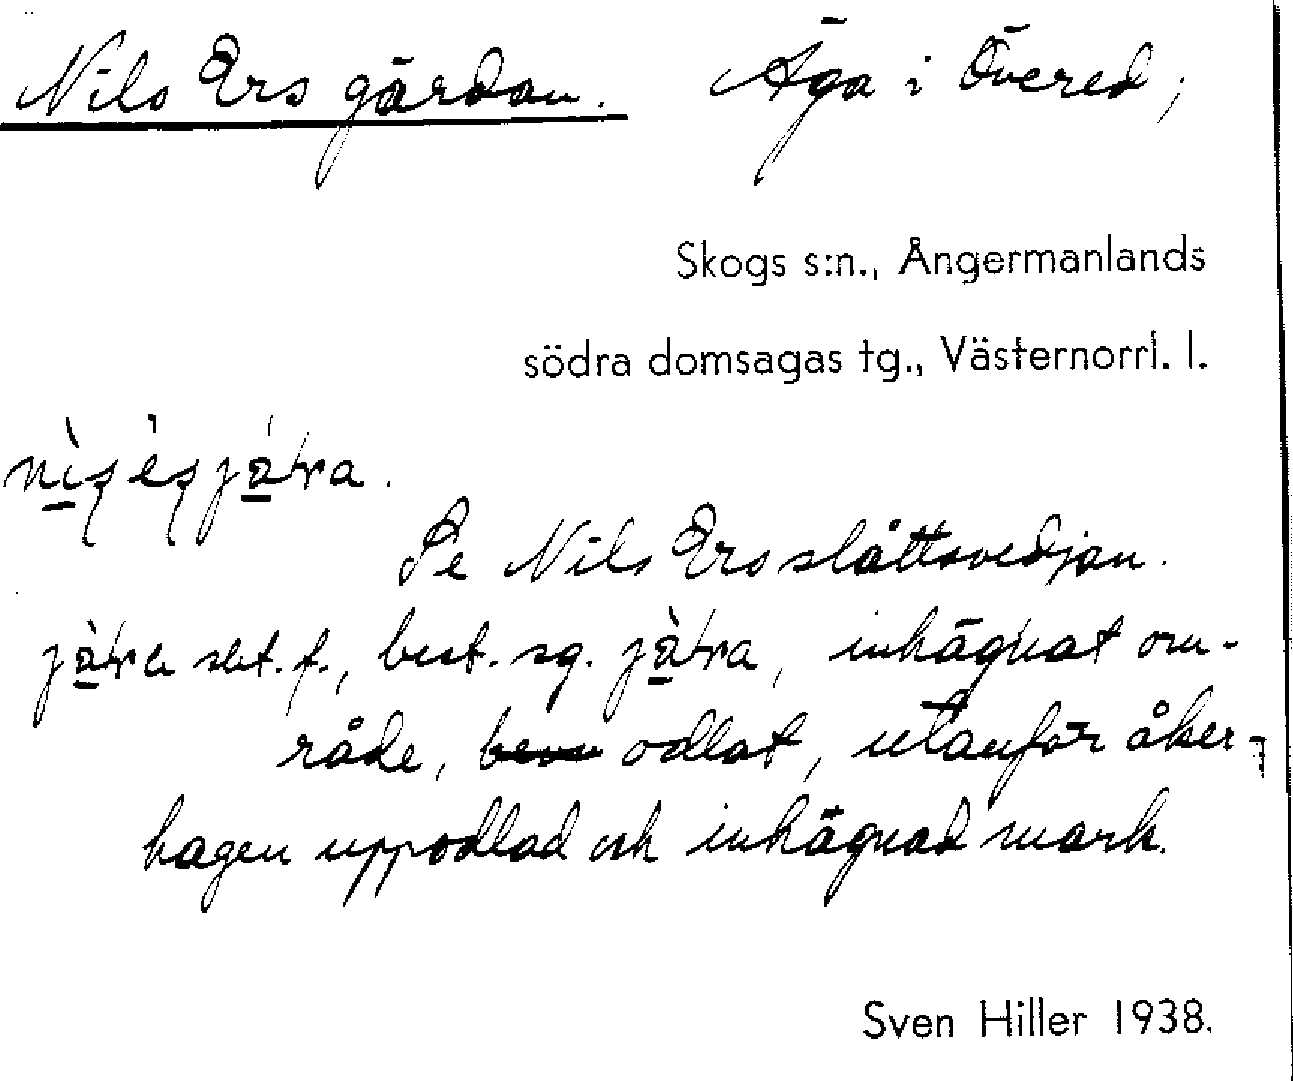 Nils Ers gärdan. Äga i Övered;
Skogs s:n., Ångermanlands
södra domsagas tg., Västernorrl. l.
Se Nils Ers slåttsvedjan.
sbt. f., best. sg. inhägnat om-
råde, odlat, utanför åker-
hagen uppodlad och inhägnad mark.
Sven Hiller 1938.